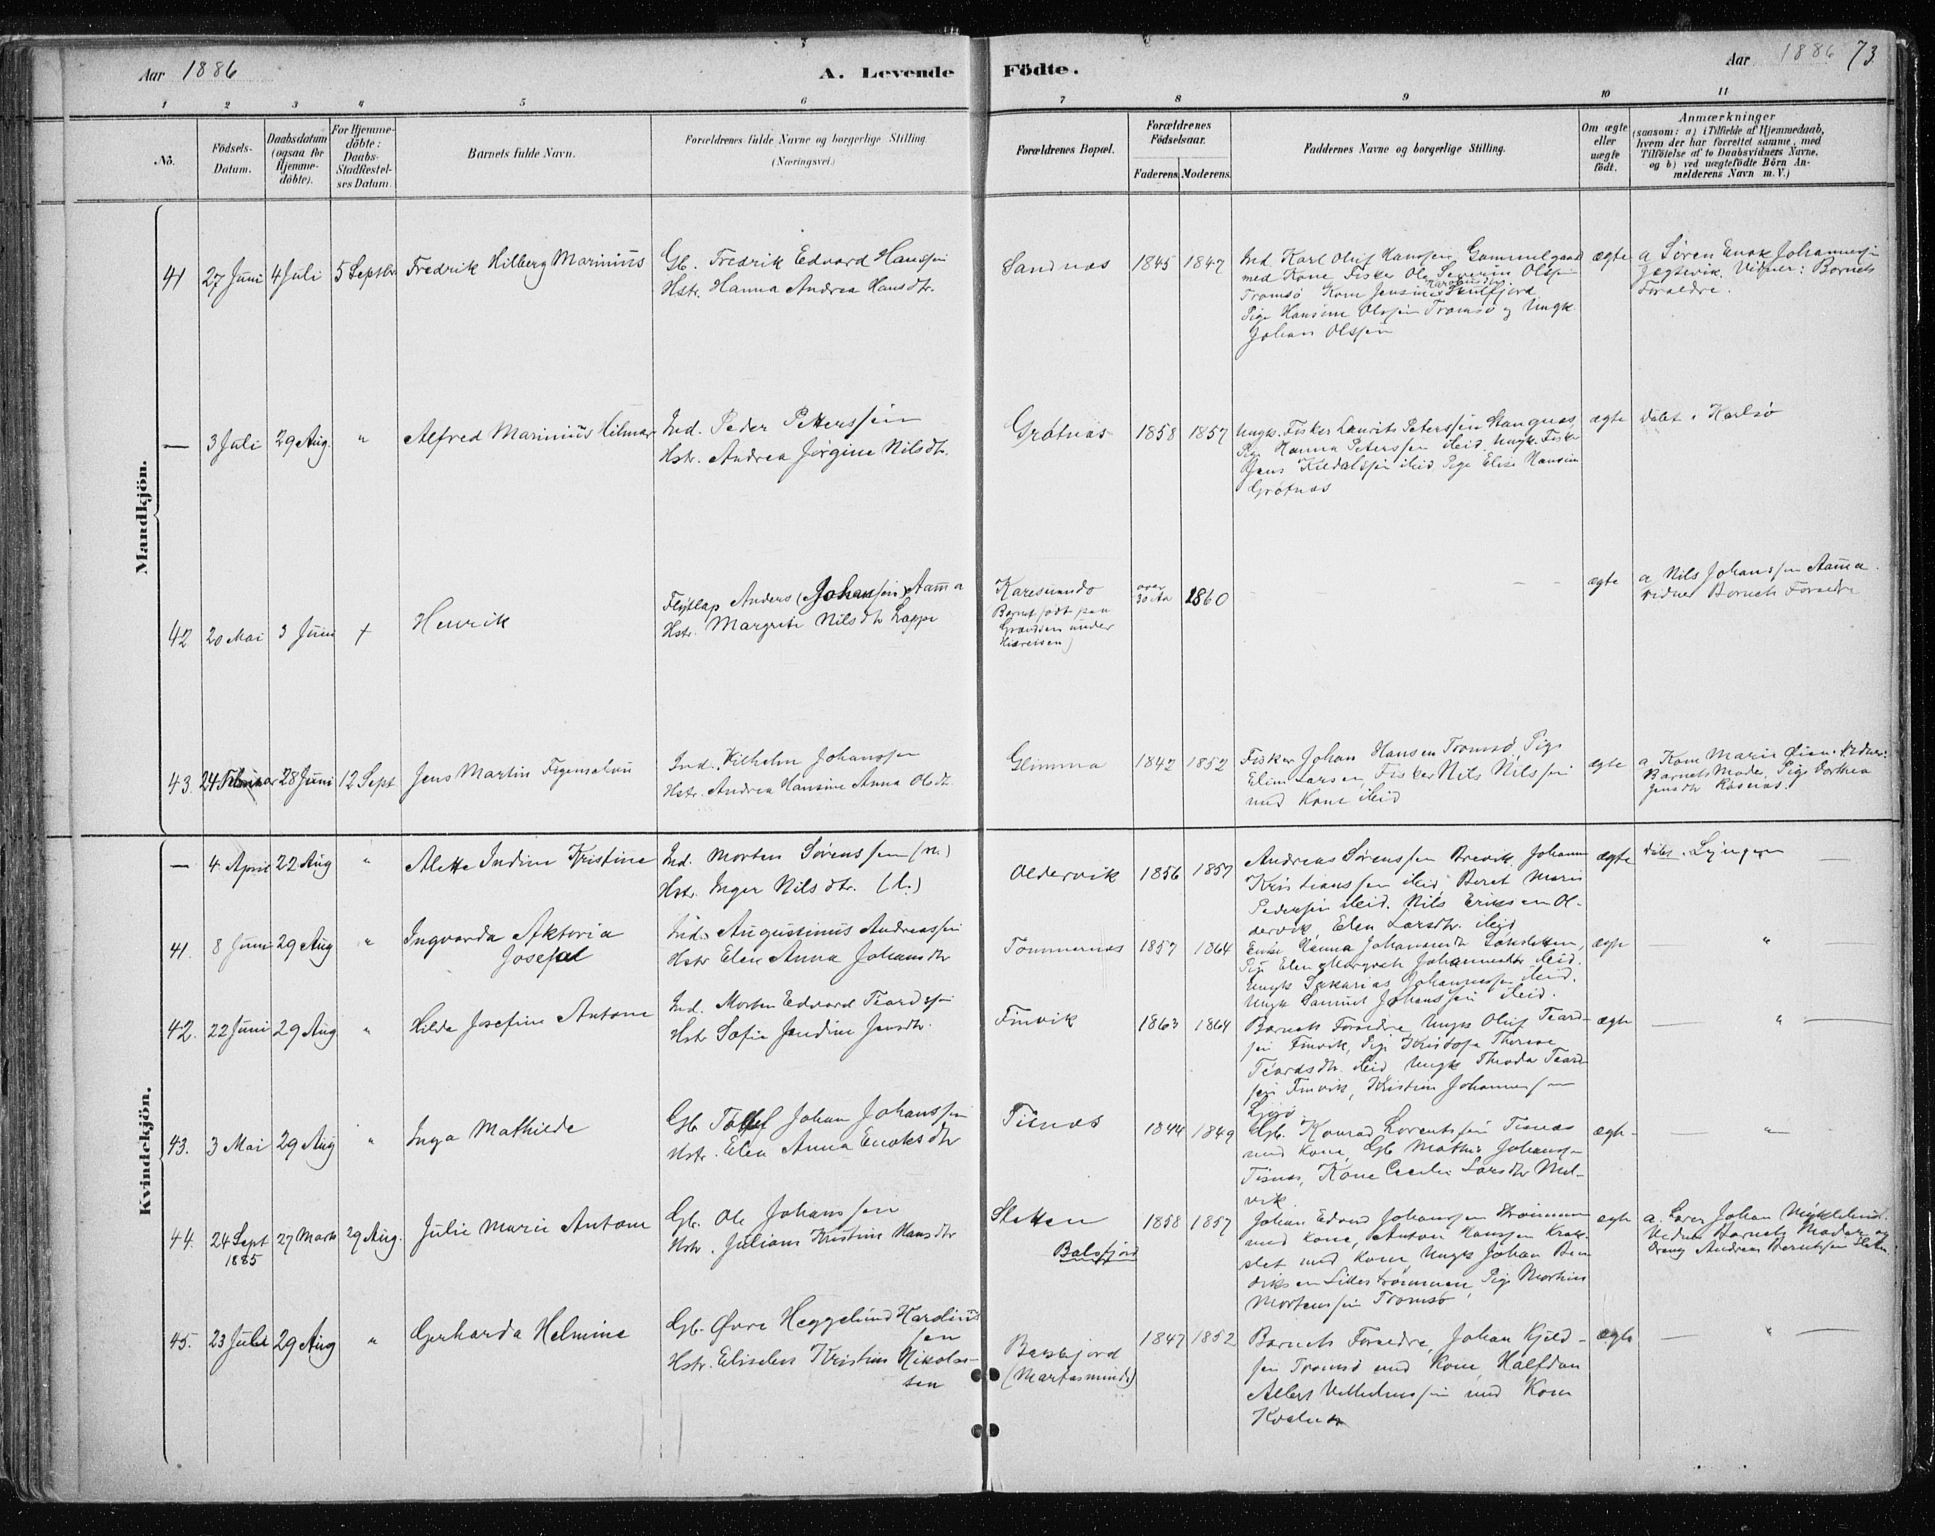 Aar 1886
A. Levende Födte.
Aar 1886 73
1 2 3 4 5 6 7 8 9 10 11
No.
Födsels-
Datum.
Daabsdatum
(ogsaa for
Hjemme-
döbte).
For Hjemme-
döbte:
Daabs-
Stadfæstel-
ses Datum.
Barnets fulde Navn.
Forældrenes fulde Navne og borgerlige Stilling
(Næringsvei.)
Forældrenes Bopæl.
Forældrenes
Födselsaar.
Faderens Moderens
Faddernes Navne og borgerlige Stilling.
Om ægte
eller
uægte
födt.
Anmærkninger
(saasom: a) i Tilfælde af Hjemmedaab,
hvem der har forrettet samme, med
Tilföielse af to Daabsvidners Navne,
og b) ved uægtefödte Börn An-
melderens Navn m. V.)
Mandkjön.
41 27 Juni 4 Juli 5 Septbr Fredrik Hilberg Marinius
Gb. Fredrik Edvard Hanssen
Hstr. Hanna Andrea Hansdtr.
Sandnæs 1845 1847
Ind Karl Oluf Hanssen Gammelgaard
med Kone Fisker Ole Severin Olssen
Tromsø Kone Jensine
Pige Hansine Olssen Tromsø og Ungk
Johan Olssen
ægte
a Søren Enok Johannessen
Jægtevik. Vidner: Barnets
Forældre.
— 3 Juli 29 Aug. " Alfred Marinius Hilmar
Ind. Peder Petterssen
Hstr. Andrea Jørgine Nilsdtr.
Grøtnæs 1858 1857
Ungk. Fisker Laurits Peterssen Stangnæs
Pige Hanna Peterssen ibid. Ungk. Fisker
Jens ibid Pige Elise Hansen
Grøtnæs
ægte
Døbt i Karlsø
42 20 Mai 3 Juni + Henrik
Flytlap Anders (Johanssen) Aama
Hstr. Margrete Nilsdtr Lappe
Karesuando
Barnet født paa
Grændsen under
over
30 Aar 1860
ægte
a, Nils Johanssen Aama.
Vidner Barnets Forældre
43. 24 Februar 28 Juni 12 Sept Jens Martin
Ind. Vilhelm Johanssen
Hstr. Andrea Hansine Anna Olsdtr
Glimma 1842 1852
Fisker Johan Hansen Tromsø, Pige
Larsen, Fisker Nils Nilssen
med Kone ibid
ægte
a, Kone Marie Øien. Vidner:
Barnets Moder, Pige Dorthea
Jensdtr
Kvindekjön.
— 4 April 22 Aug " Alette Indine Kristine
Ind. Morten Sørenssen (n.)
Hstr. Inger Nilsdtr. (l.)
Oldervik 1856 1857
Andreas Sørenssen Brevik Johan
Kristianssen ibid, Beret Marie
Pederssen ibid. Nils Eriksen Ol-
dervik, Elen Larsdtr. ibid
ægte
døbt i Lyngen
41. 8 Juni 29 Aug " Ingvarda Aktoria
Josefæl
Ind. Augustinus Andreassen
Hstr Elen Anna Johansdtr
Tommernæs 1857 1864
Enke Hanna Johansdtr
Pige Elen Margreth Johannesdtr ibid.
Ungk Sakarias Johannessen ibid.
Ungk Samuel Johanssen ibid.
ægte "
42. 22 Juni 29 Aug " Hilda Josefine Antone
Ind. Morten Edvard Teardssen
Hstr Sofie Jendine Jensdtr.
Finvik 1863 1864
Barnets Forældre, Ungk Oluf Teard-
sen Finvik, Pige Therese
Teardsdtr. ibid, Ungk Theodor Teard-
sen Finvik, Kristian Johannessen
ægte — " —
43. 3 Mai 29 Aug " Inga Mathilde
Gb. Johan Johanssen
Hstr. Elen Anna Enoksdtr
Tisnæs 1844 1849
Gb. Konrad Lorentssen Tisnæs
med Kone, Gb. Mathis Johanssen
Tisnæs, Kone Cecilie Larsdtr Mel-
vik
ægte — " —
44. 24 Sept
1885 27 Marts 29 Aug. Julie Marie Antone
Gb. Ole Johanssen
Hstr. Juliane Kristine Hansdtr
Sletten
Balsfjord
1858 1857
Johan Edvard Johanssen
med Kone, Anton Hanssen
slet med Kone, Ungk Johan Ben-
diksen Pige Martine
Mortenssen Tromsø
ægte
a. Lærer Johan
Vidner Barnets Moder og
Dreng Andreas
45. 23 Juli 29 Aug " Gerharda Helmine
Gb. Øvre Heggelund Hardinus
sen
Hstr. Elisebes Kristine Nikolas-
sen
(Martasminde)
1847 1852
Barnets Forældre, Johan Kjeld-
sen Tromsø med Kone, Halfdan
Albert Vilhelmssen med Kone
ægte — " —